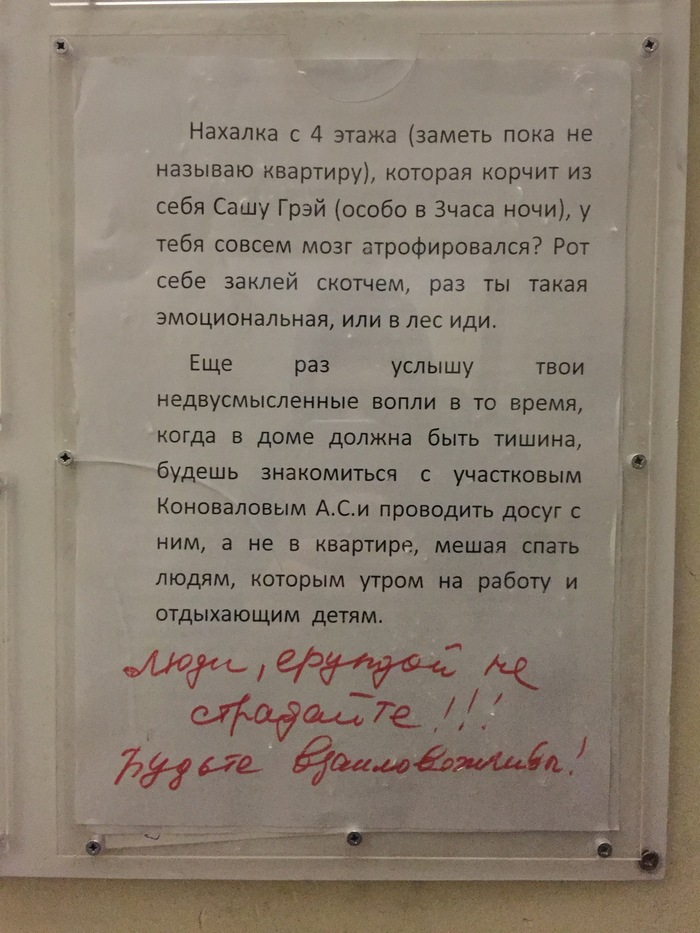 Нахалка с 4 этажа (заметь пока не
называю квартиру), которая корчит из
себя Сашу Грэй (особо в 3часа ночи), у
тебя совсем мозг атрофировался? Рот
себе заклей скотчем, раз ты такая
эмоциональная, или в лес иди.
Еще раз услышу твои
недвусмысленные вопли в то время,
когда в доме должна быть тишина,
будешь знакомиться с участковым
Коноваловым А.С.и проводить досуг с
ним, а не в квартире, мешая спать
людям, которым утром на работу и
отдыхающим детям.
Люди, ерундой не
страдайте!!!
Будьте взаимовежливы!